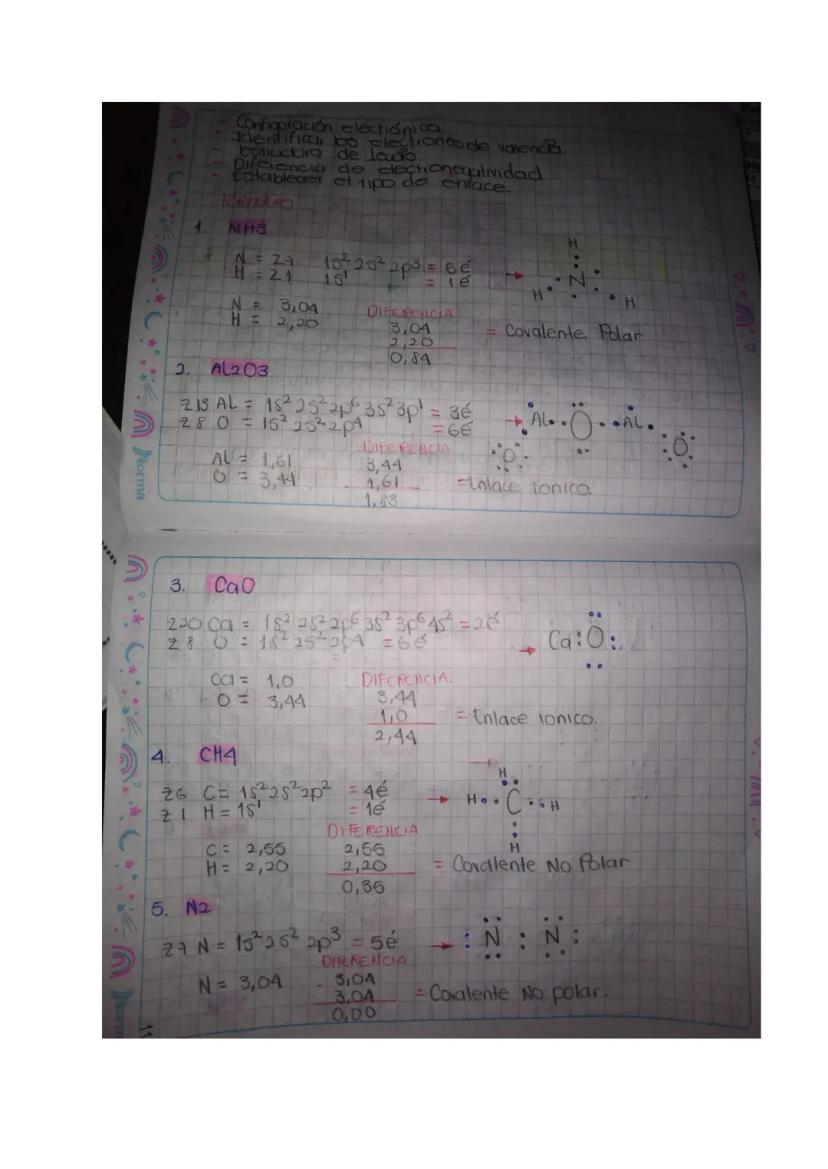 - Configuración electrónica
- Identificar los electrones de valencia.
- Estructura de Lewis
- Diferencia de electronegatividad
- Establecer el tipo de enlace.
1. NH3
H
N = Z7 1s² 2s² 2p³ = 5é
H = Z1 1s¹ = 1é
N
H H
N = 3,04
H = 2,20
DIFERENCIA
3,04
2,20
0,84
= Covalente Polar
2. AL2O3
Z13 AL = 1s² 2s² 2p⁶ 3s² 3p¹ = 3é
Z8 O = 1s² 2s² 2p⁴ = 6é
AL O AL
O O
AL = 1,61
O = 3,44
DIFERENCIA
3,44
1,61
1,83
= Enlace Ionico
Norma
3. CaO
Z20 Ca = 1s² 2s² 2p⁶ 3s² 3p⁶ 4s² = 2é
Z8 O = 1s² 2s² 2p⁴ = 6é
Ca:O:
Ca = 1,0
O = 3,44
DIFERENCIA
3,44
1,0
2,44
= Enlace ionico.
4. CH4
Z6 C = 1s² 2s² 2p² = 4é
Z1 H = 1s¹ = 1é
H
H C H
H
C = 2,55
H = 2,20
DIFERENCIA
2,55
2,20
0,35
= Covalente No Polar
5. N2
Z7 N = 1s² 2s² 2p³ = 5é
: N : N :
N = 3,04
DIFERENCIA
- 3,04
3,04
0,00
= Covalente No polar.
Norma
11